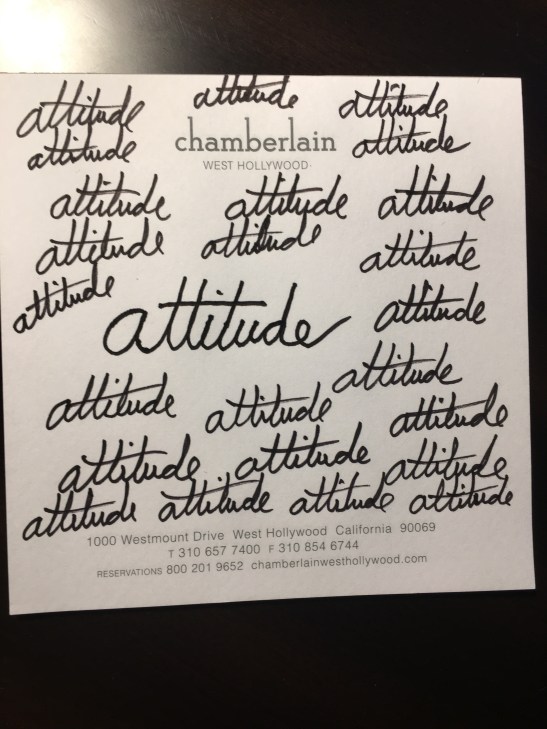 attitude attitude attitude
chamberlain
attitude attitude
WEST HOLLYWOOD
attitude attitude attitude
attitude attitude attitude
attitude attitude attitude
attitude attitude attitude
attitude attitude attitude
attitude attitude attitude attitude
attitude attitude attitude
1000 Westmount Drive West Hollywood California 90069
T 310 657 7400 F 310 854 6744
RESERVATIONS 800 201 9652 chamberlainwesthollywood.com